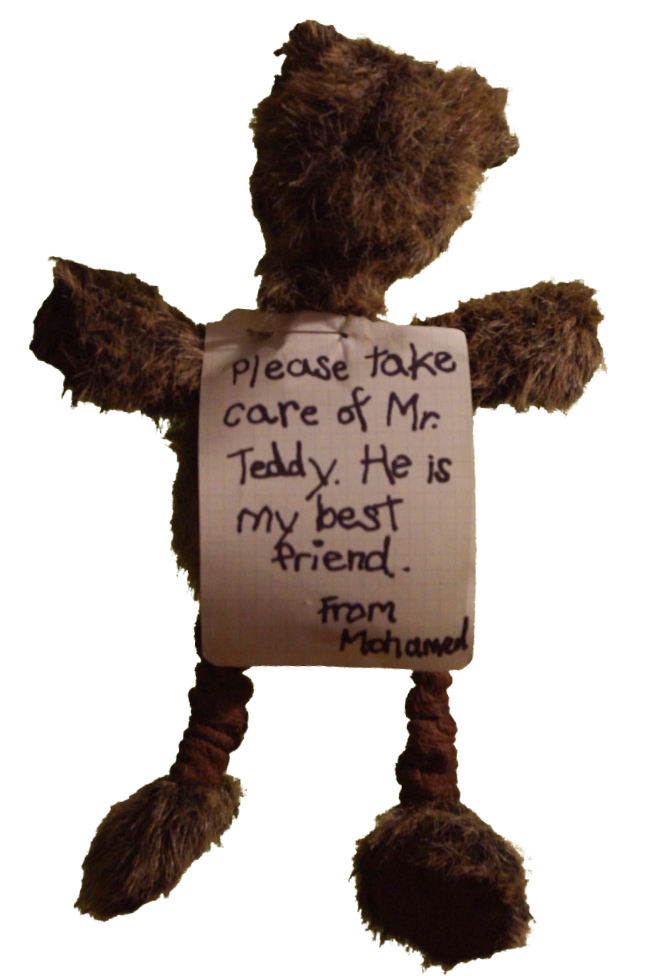 Please take
care of Mr.
Teddy. He is
my best
friend.
From
Mohamed